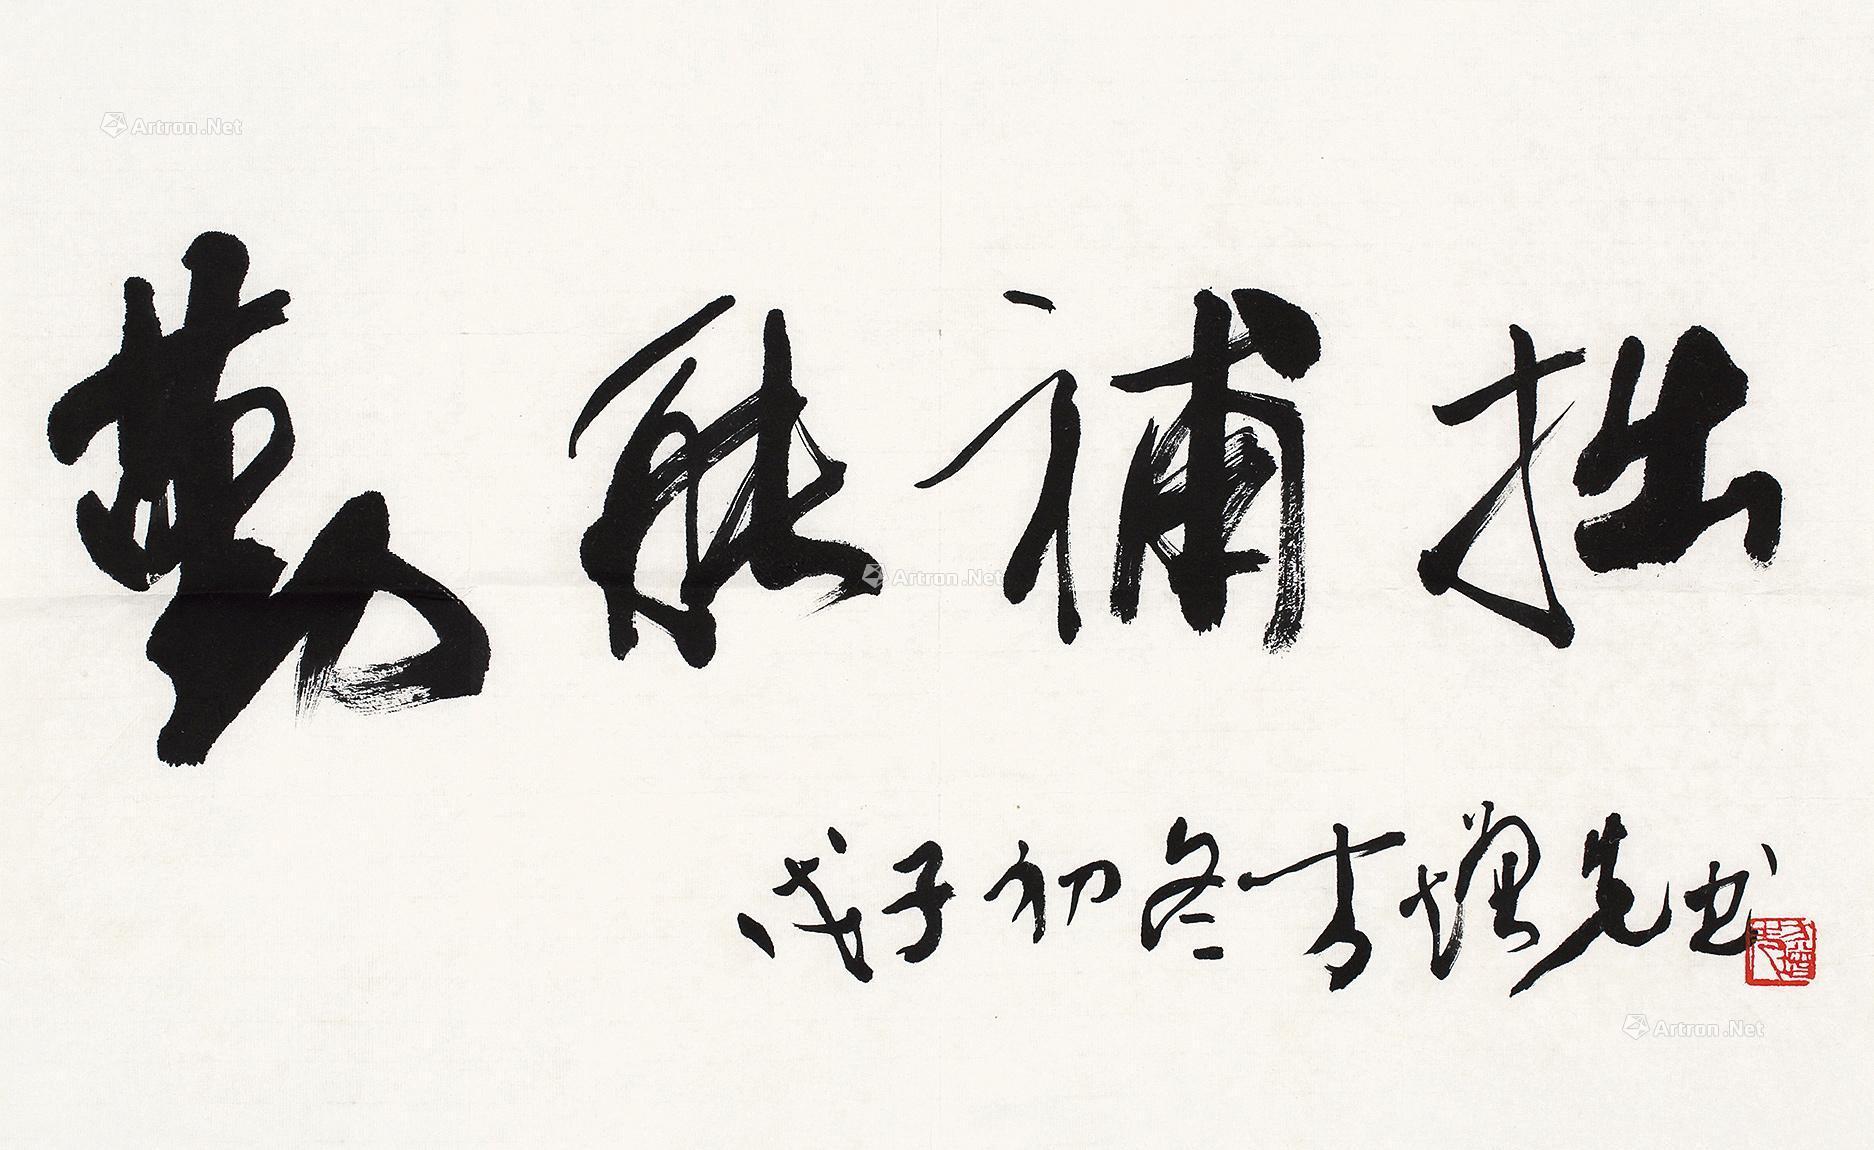 Artron.Net
勤能補拙
Artron.Net
戊子初冬方增先书
Artron.Net